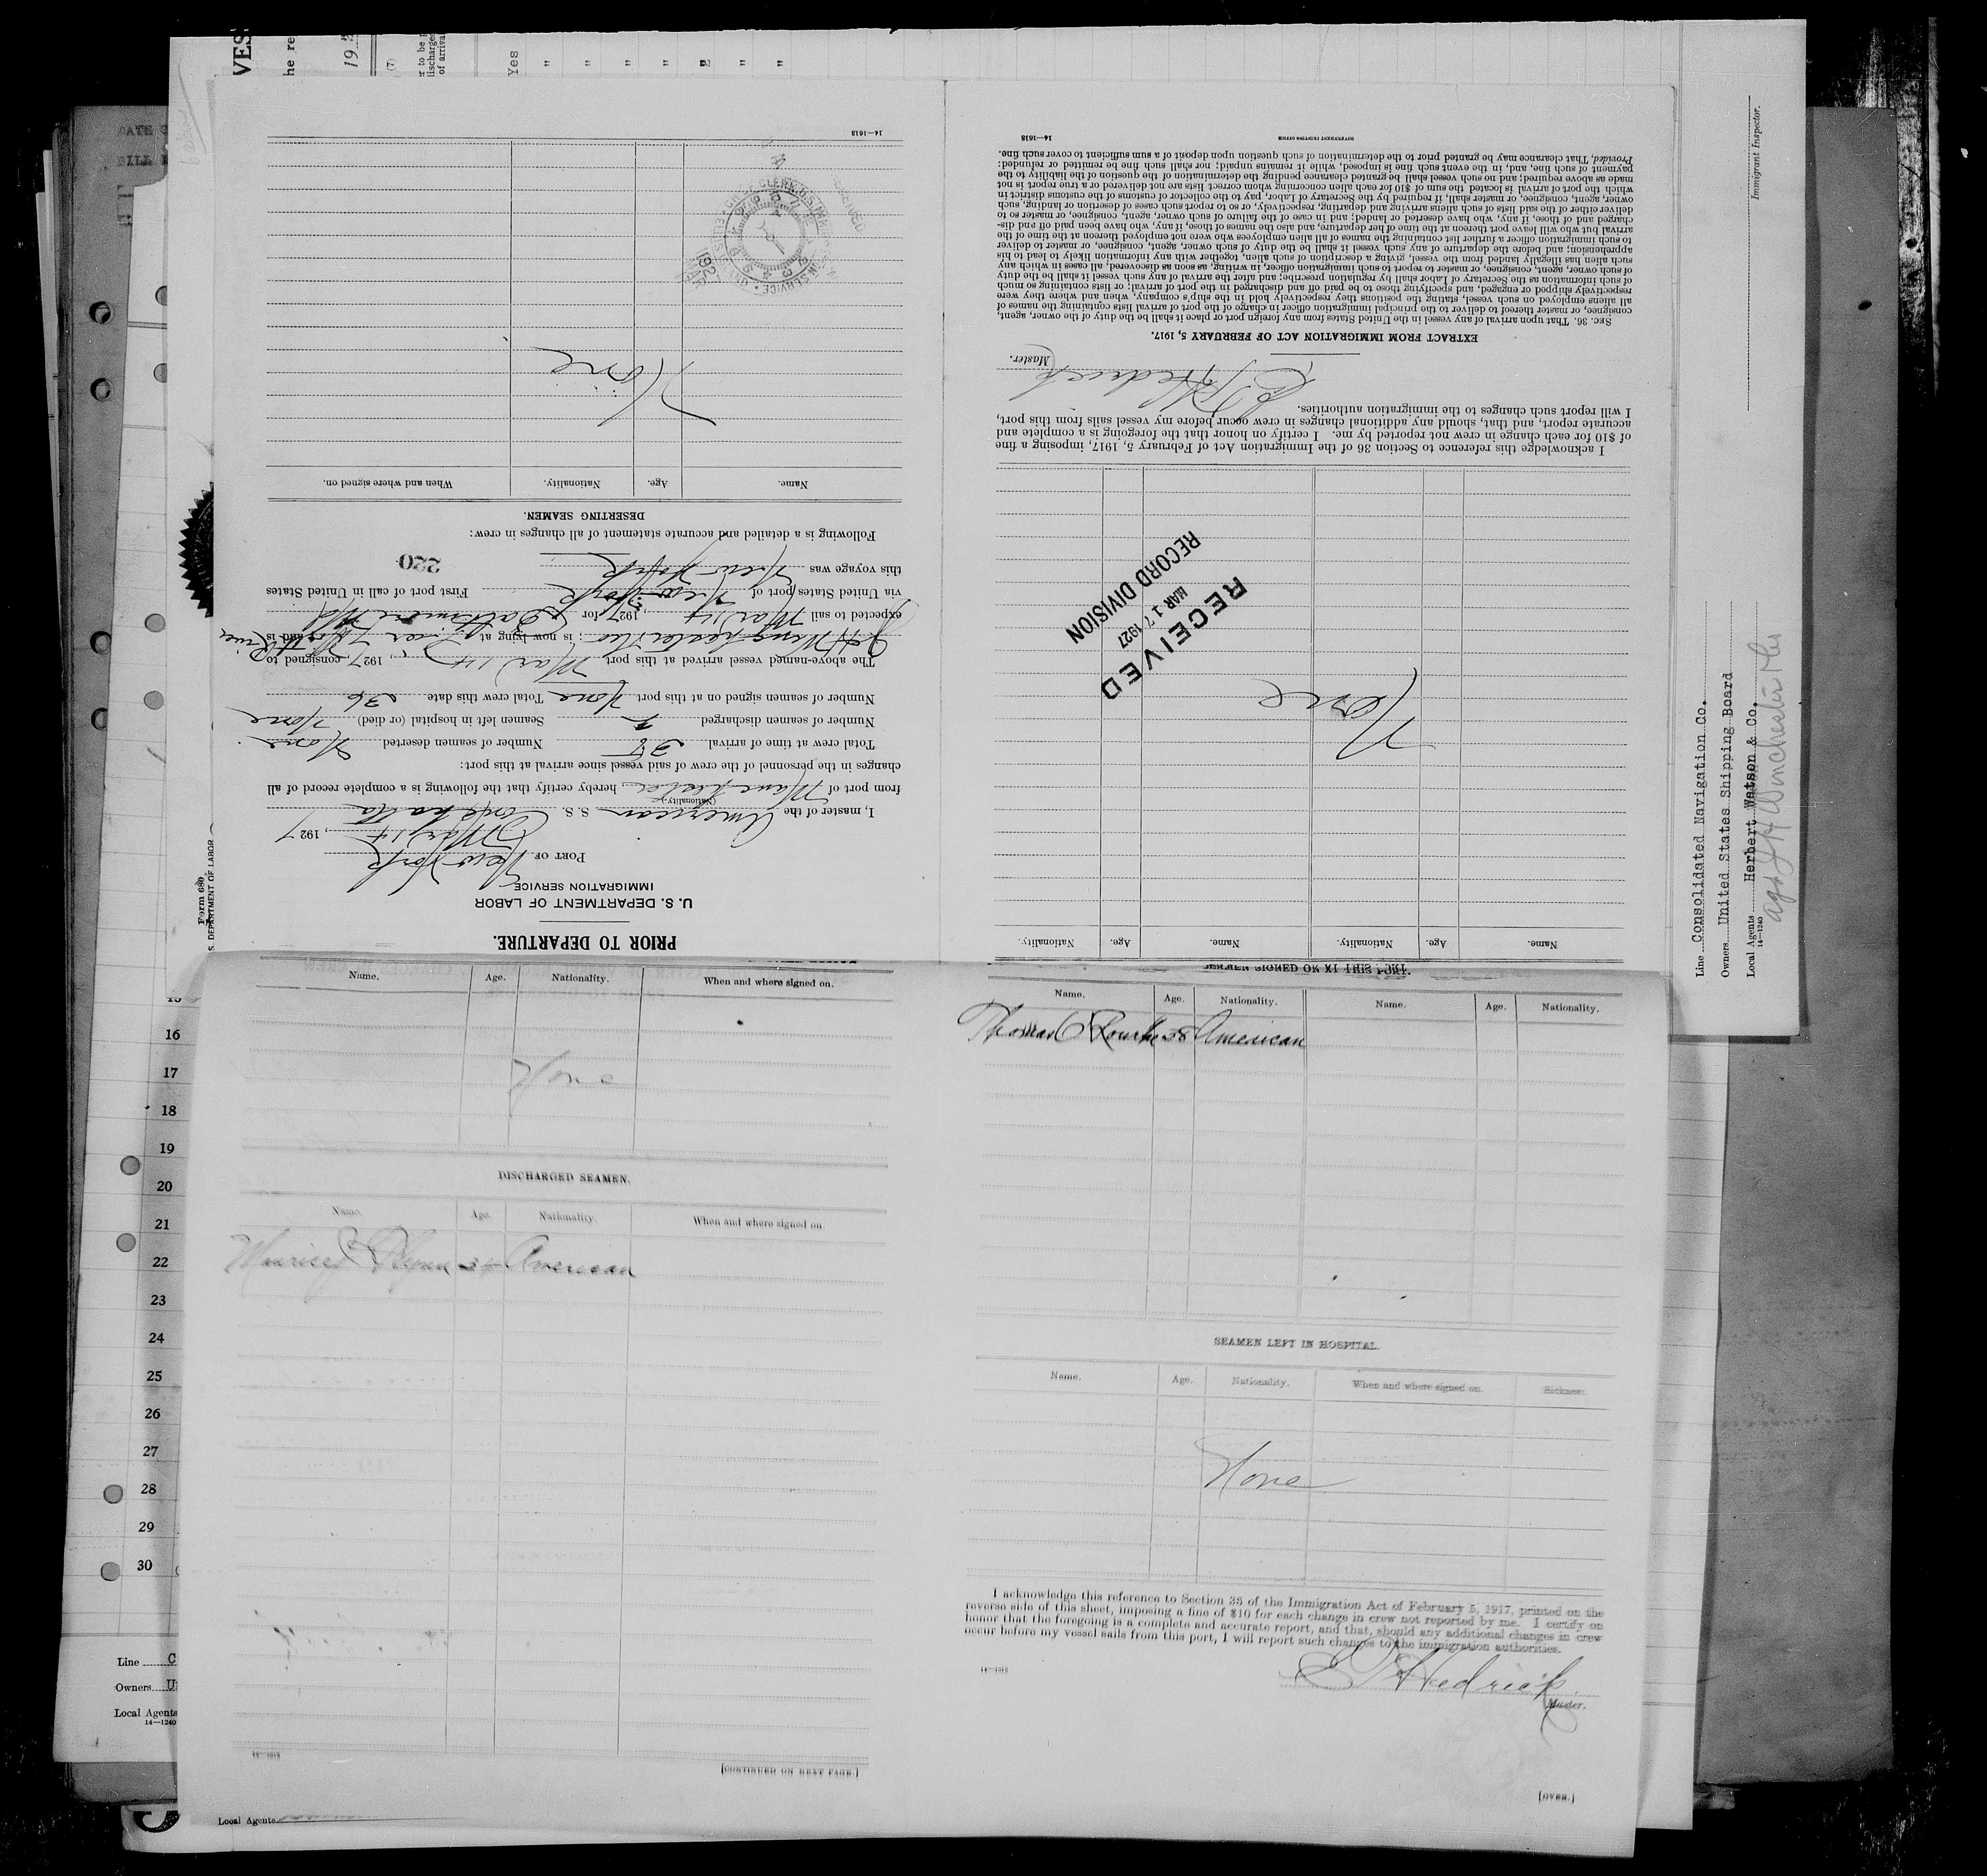 PRIOR TO DEPARTURE.
U. S. DEPARTMENT OF LABOR
IMMIGRATION SERVICE
PORT OF New York
Mar 14, 1927
I, master of the American S. S.
(Nationality.)
from port of Manchester hereby certify that the following is a complete record of all
changes in the personnel of the crew of said vessel since arrival at this port:
Total crew at time of arrival 38 Number of seamen deserted None
Number of seamen discharged 2 Seamen left in hospital (or died) None
Number of seamen signed on at this port None Total crew this date 36
The above-named vessel arrived at this port Mar 14, 1927, consigned to
; is now lying at and is
expected to sail Mar 14, 1927 for Baltimore Md
via United States port of New York First port of call in United States
this voyage was New York
220
Following is a detailed and accurate statement of all changes in crew:
DESERTING SEAMEN.
Name. Age. Nationality. When and where signed on.
None
MAR 1927
14—1613
Name. Age. Nationality. Name. Age. Nationality.
None
RECEIVED
MAR 17 1927
RECORD DIVISION
I acknowledge this reference to Section 36 of the Immigration Act of February 5, 1917, imposing a fine
of $10 for each change in crew not reported by me. I certify on honor that the foregoing is a complete and
accurate report, and that, should any additional changes in crew occur before my vessel sails from this port,
I will report such changes to the immigration authorities.
Hedrick
Master.
EXTRACT FROM IMMIGRATION ACT OF FEBRUARY 5, 1917.
SEC. 36. That upon arrival of any vessel in the United States from any foreign port or place it shall be the duty of the owner, agent,
consignee, or master thereof to deliver to the principal immigration officer in charge of the port of arrival lists containing the names of
all aliens employed on such vessel, stating the positions they respectively hold in the ship's company, when and where they were
respectively shipped or engaged, and specifying those to be paid off and discharged in the port of arrival; or lists containing so much
of such information as the Secretary of Labor shall by regulation prescribe; and after the arrival of any such vessel it shall be the duty
of such owner, agent, consignee, or master to report to such immigration officer, in writing, as soon as discovered, all cases in which any
such alien has illegally landed from the vessel, giving a description of such alien, together with any information likely to lead to his
apprehension; and before the departure of any such vessel it shall be the duty of such owner, agent, consignee, or master to deliver
to such immigration officer a further list containing the names of all alien employees who were not employed thereon at the time of the
arrival but who will leave port thereon at the time of her departure, and also the names of those, if any, who have been paid off and dis-
charged and of those, if any, who have deserted or landed; and in case of the failure of such owner, agent, consignee, or master so to
deliver either of the said lists of such aliens arriving and departing, respectively, or so to report such cases of desertion or landing, such
owner, agent, consignee, or master shall, if required by the Secretary of Labor, pay to the collector of customs of the customs district in
which the port of arrival is located the sum of $10 for each alien concerning whom correct lists are not delivered or a true report is not
made as above required; and no such vessel shall be granted clearance pending the determination of the question of the liability to the
payment of such fine, and, in the event such fine is imposed, while it remains unpaid; nor shall such fine be remitted or refunded:
Provided, That clearance may be granted prior to the determination of such question upon deposit of a sum sufficient to cover such fine.
14—1613 GOVERNMENT PRINTING OFFICE
Name. Age. Nationality. When and where signed on.
None
DISCHARGED SEAMEN.
Name. Age. Nationality. When and where signed on.
American
[CONTINUED ON NEXT PAGE.]
SEAMEN SIGNED ON AT THIS PORT.
Name. Age. Nationality. Name. Age. Nationality.
Thomas O'Rourke 38 American
SEAMEN LEFT IN HOSPITAL.
Name. Age. Nationality. When and where signed on. Sickness.
None
I acknowledge this reference to Section 36 of the Immigration Act of February 5, 1917, printed on the
reverse side of this sheet, imposing a fine of $10 for each change in crew not reported by me. I certify on
honor that the foregoing is a complete and accurate report, and that, should any additional changes in crew
occur before my vessel sails from this port, I will report such changes to the immigration authorities.
Hedrick
Master.
[OVER.]
Line Consolidated Navigation Co.
Owners United States Shipping Board
Local Agents Herbert Watson & Co.
14—1240
Immigrant Inspector.
Form 680
S. DEPARTMENT OF LABOR
VES
he re
19
(7)
Yes
"
"
"
"
"
"
16
17
18
19
20
21
22
23
24
25
26
27
28
29
30
Line C
Owners U
Local Agents
14—1240
Local Agents